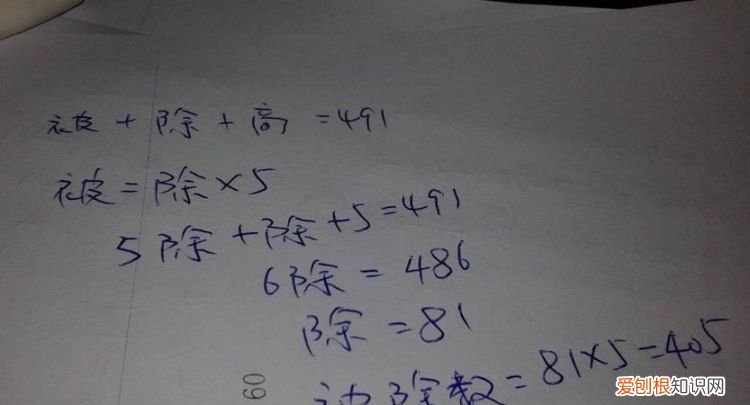 被 + 除 + 商 = 491
被 = 除 × 5
5除 + 除 + 5 = 491
6除 = 486
除 = 81
被除数 = 81×5=405
60
爱创根知识网
www.icgu.com